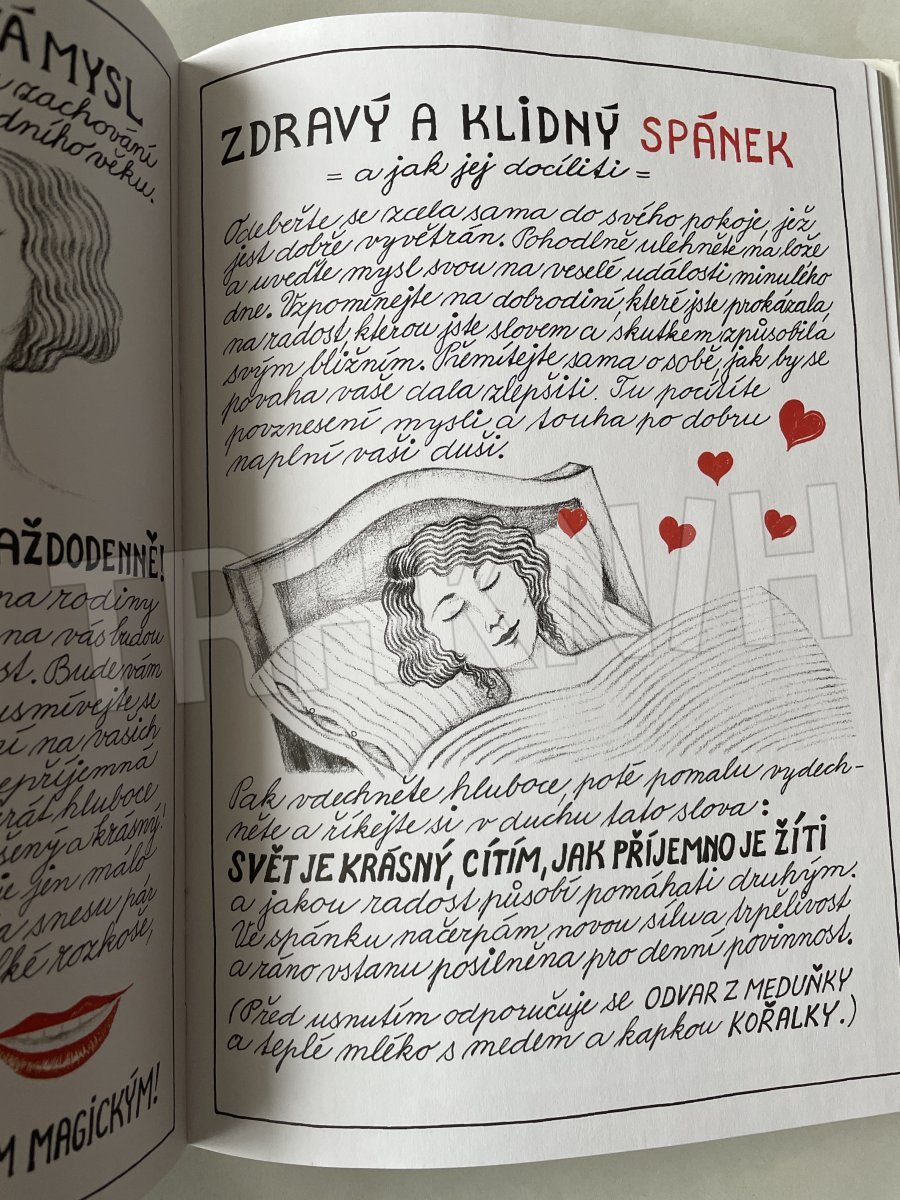 Á MYSL
zachování
dního věku.
AŽDODENNĚ!
na rodiny
na vás budou
st. Bude vám
usmívejte se
ní na vašich
nepříjemná
krát hluboce
šený a krásný!
je jen málo
a snesu pár
lké rozkoše,
M MAGICKÝM!
ZDRAVÝ A KLIDNÝ SPÁNEK
= a jak jej docíliti =
Odebeřte se zcela sama do svého pokoje, jež
jest dobře vyvětrán. Pohodlně ulehněte na lože
a uveďte mysl svou na veselé události minulého
dne. Vzpomínejte na dobrodiní, které jste prokázala,
na radost, kterou jste slovem a skutkem způsobila
svým bližním. Přemítejte sama o sobě, jak by se
povaha vaše dala zlepšiti. Tu pocítíte
povznesení mysli a touha po dobru
naplní vaši duši.
Pak vdechněte hluboce, poté pomalu vydech-
něte a říkejte si v duchu tato slova:
SVĚT JE KRÁSNÝ, CÍTÍM, JAK PŘÍJEMNO JE ŽÍTI
a jakou radost působí pomáhati druhým.
Ve spánku načerpám novou sílu a trpělivost
a ráno vstanu posilněna pro denní povinnost.
(Před usnutím odporučuje se ODVAR Z MEDUŇKY
a teplé mléko s medem a kapkou KOŘALKY.)
TRHKNIH